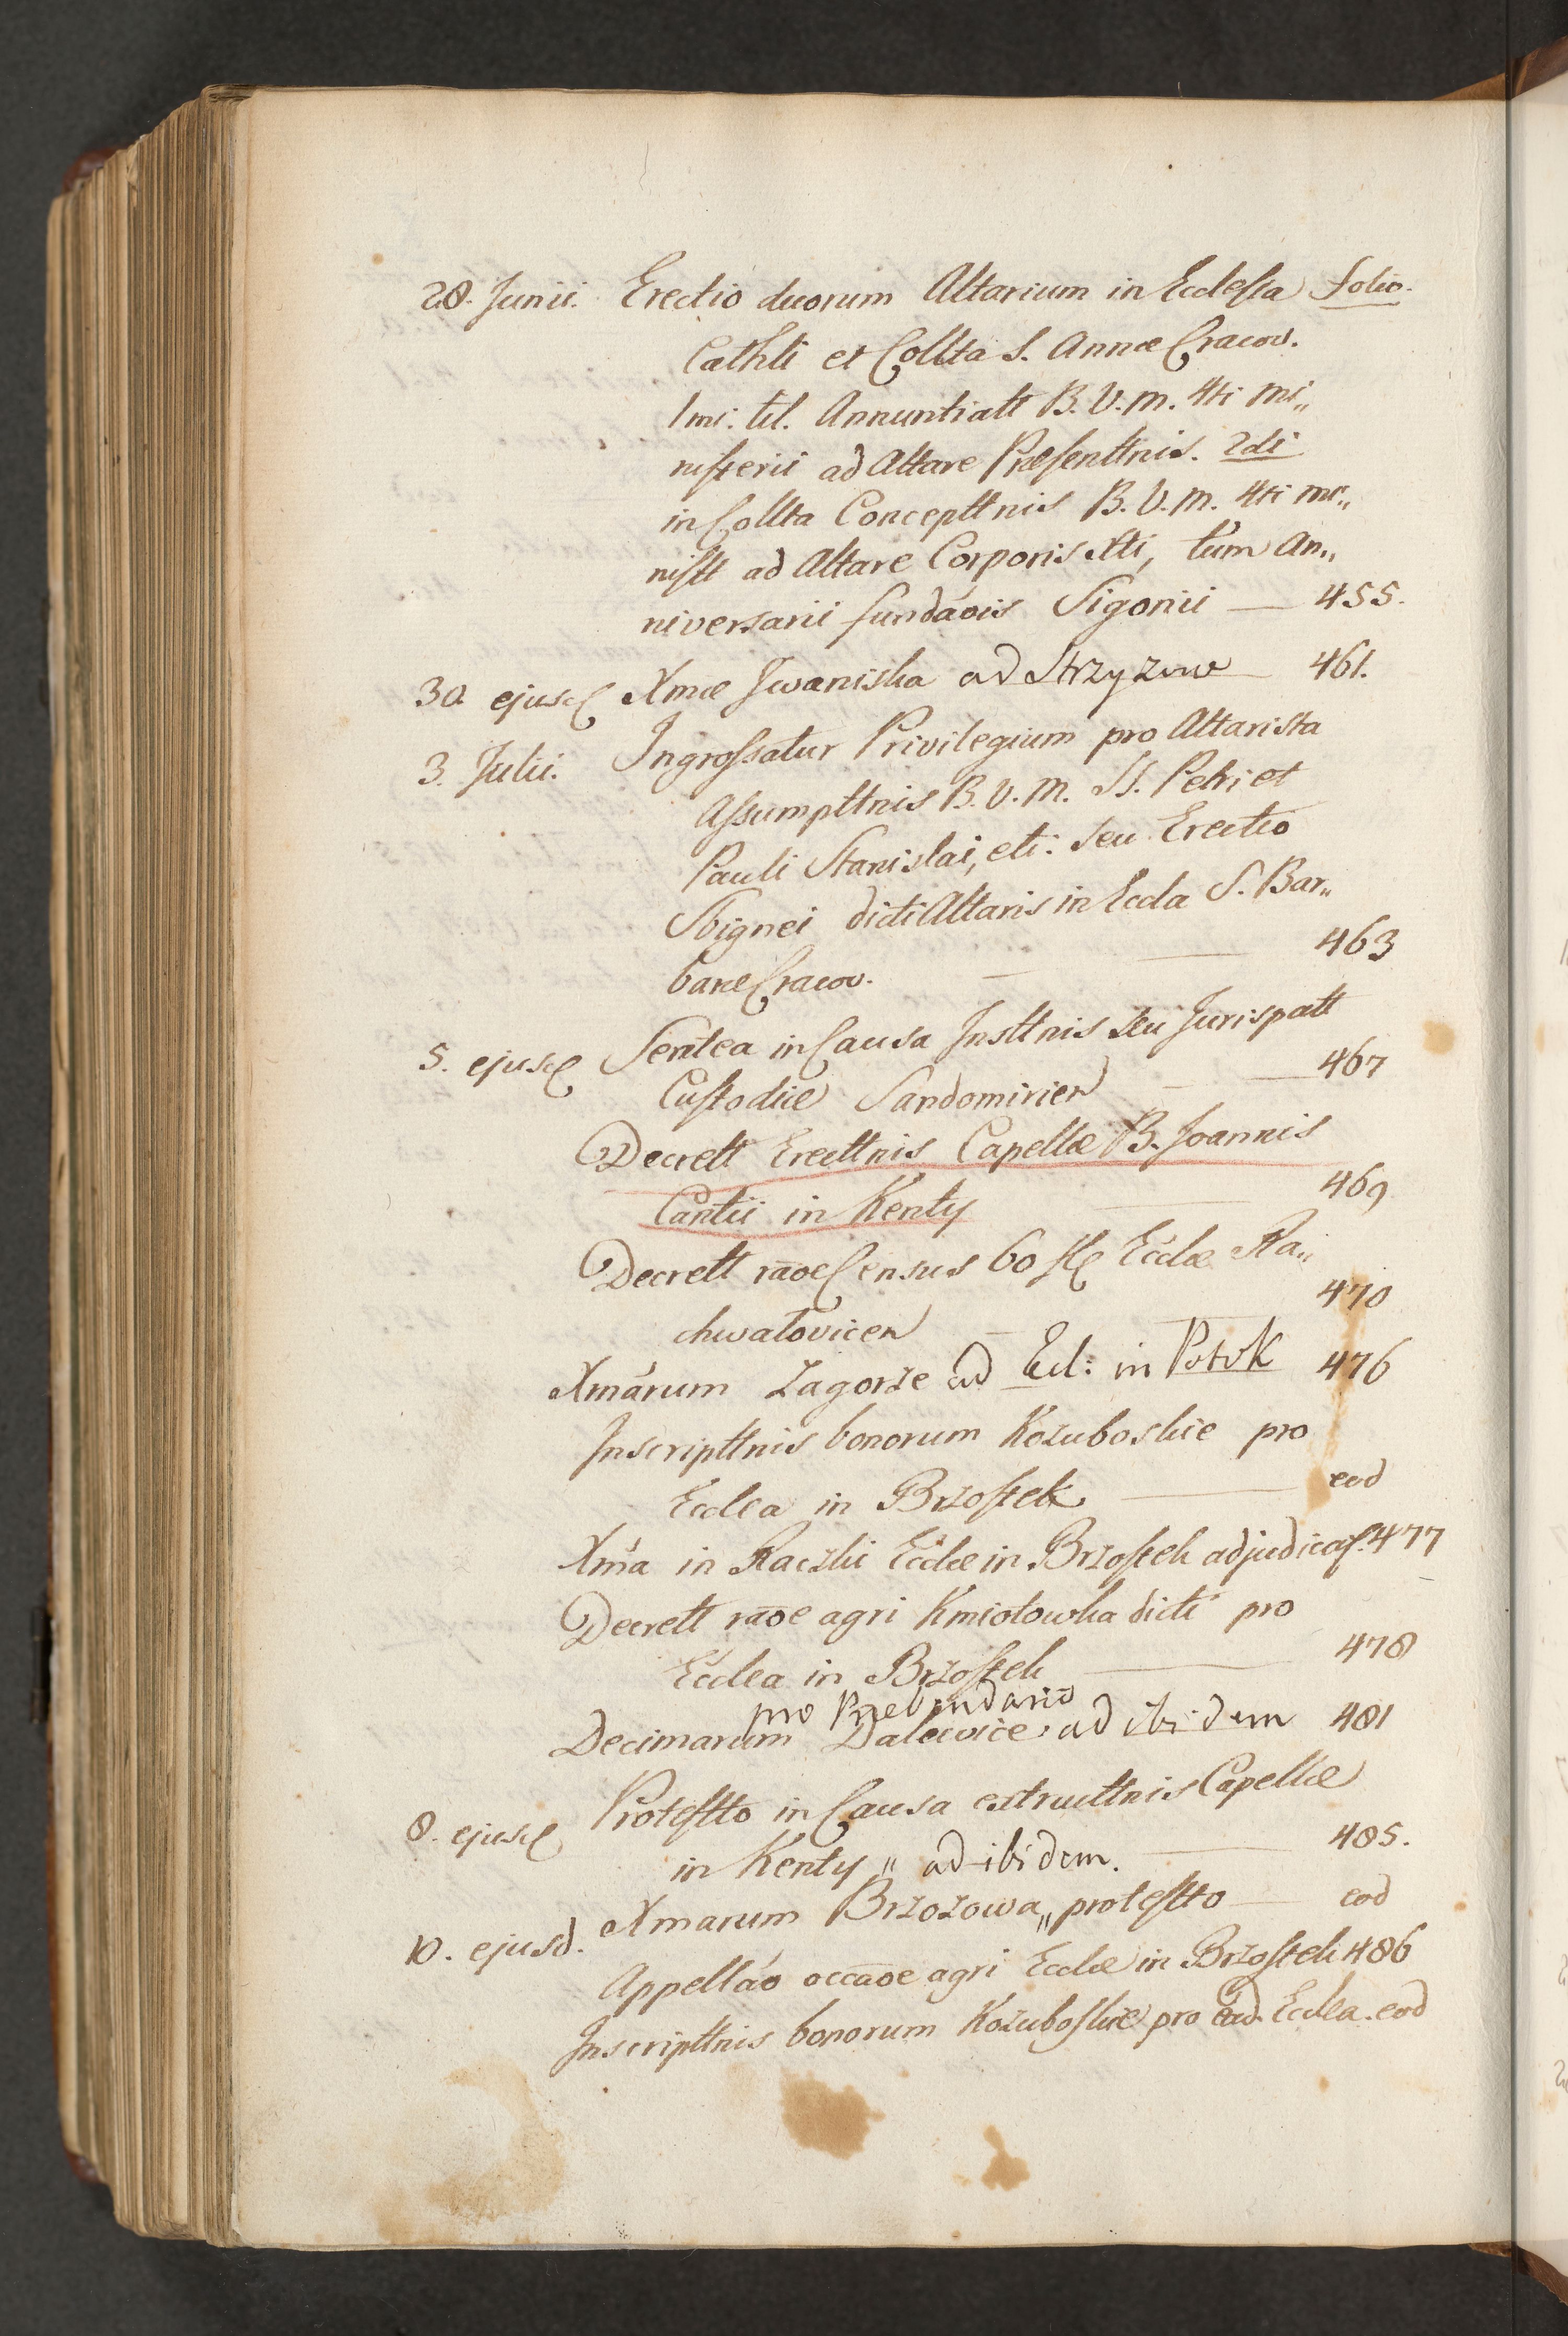 28. Junii. Erectio duorum Altarium in Ecclesia folio.
Cathli et Collta S. Annæ Cracov.
1mi. tit. Annuntiatt B. V. M. 4ti mi„
nisterii ad Altare Præsenttnis. 2di
in Collta Concepttnis B. V. M. 4ti mi„
nistt ad Altare Corporis Xti, tum An„
niversarii fundaóis Sigonii — 455.
30 ejusd Xmæ Jwaniska ad Strzyzow 461.
3. Julii. Ingrossatur Privilegium pro Altarista
Assumpttnis B. V. M. SS. Petri et
Pauli Stanislai, etc: seu Erectio
Sbignei dicti Altaris in Eccla S. Bar„
baræ Cracov. — 463
5. ejusd Sentea in Causa Insttnis seu Jurispatt
Custodiæ Sandomirien — 467
Decrett Erecttnis Capellæ B. Joannis
Cantii in Kenty — 469
Decrett raoe Census 60 fl Ecclæ Ra„
chwałovicen — 470
Xmárum Zagorze ad Ecl: in Potok 476
Inscripttnis bonorum Kozuboskie pro
Ecclea in Brzostek — eod
Xma in Raczki Ecclæ in Brzostek adjudicaf. 477
Decrett raoe agri Kmiotowka dicti pro
Ecclea in Brzostek — 478
pro Præbendario
Decimarum Dalewice ad ibidem 481
8. ejusd Protestto in Causa extructtnis Capellæ
in Kenty „ ad ibidem. — 485.
10. ejusd. Xmarum Brzozowa „ protestto — eod
Appellao occaoe agri Ecclæ in Brzostek 486
Inscripttnis bonorum Kozuboskie pro ead. Ecclea. eod